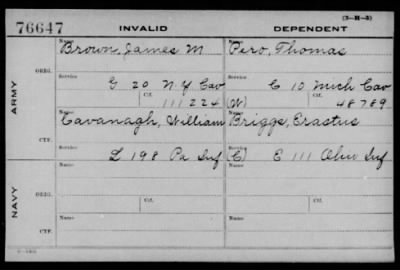 (3-H-3)
76647 INVALID DEPENDENT
Name Name
Brown, James M Pero, Thomas
ORIG. Service Service
G 20 N.Y. Cav C 10 Mich Cav
Ctf. Ctf.
111224 (W) 48789
ARMY
Name Name
Cavanagh, William Briggs, Erastus
CTF. Service Service
L 198 Pa Inf (C) E 111 Ohio Inf
Name Name
ORIG.
NAVY
Name Name
CTF.